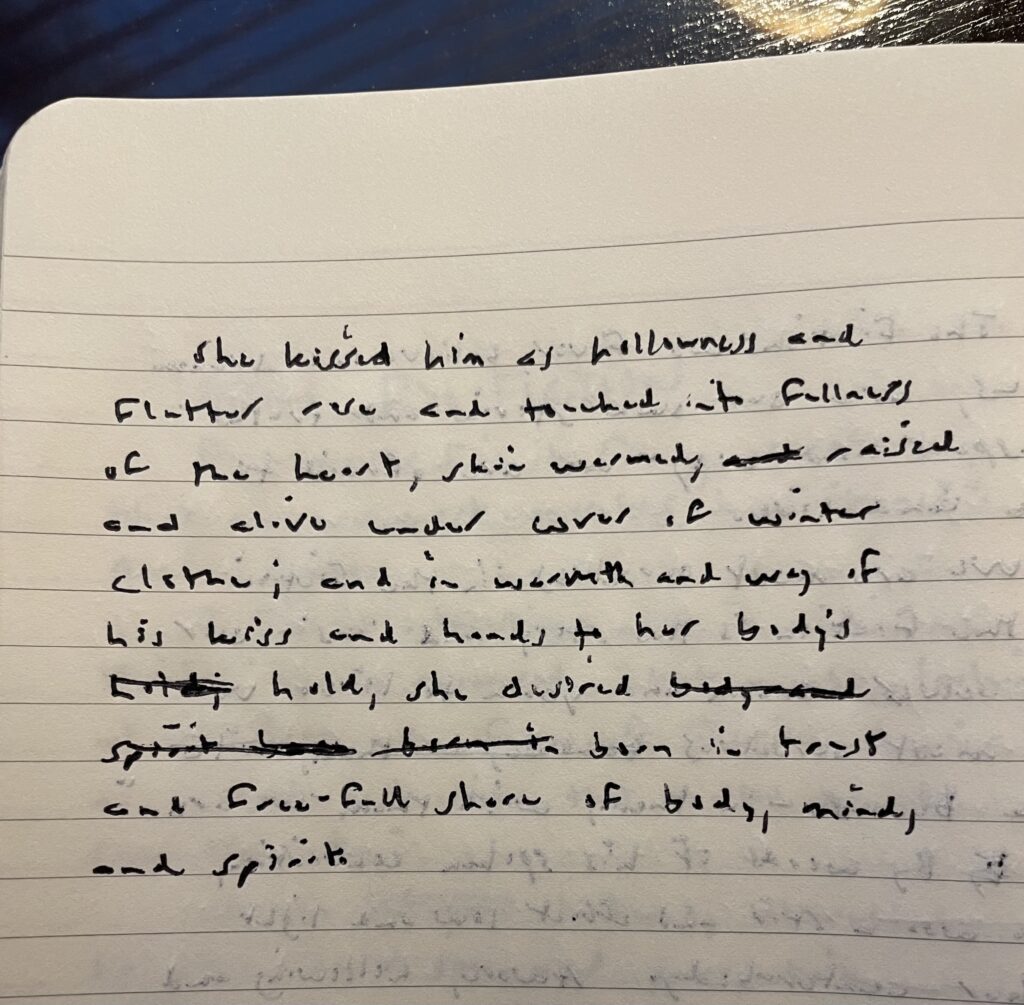 She kissed him as hollowness and
flutter rose and touched into fullness
of the heart, skin warmed, and raised
and alive under cover of winter
clothe; and in warmth and way of
his kiss and hands to her body's
hold; hold, she desired body and
spirit born in born in trust
and free-fall share of body, mind,
and spirit.